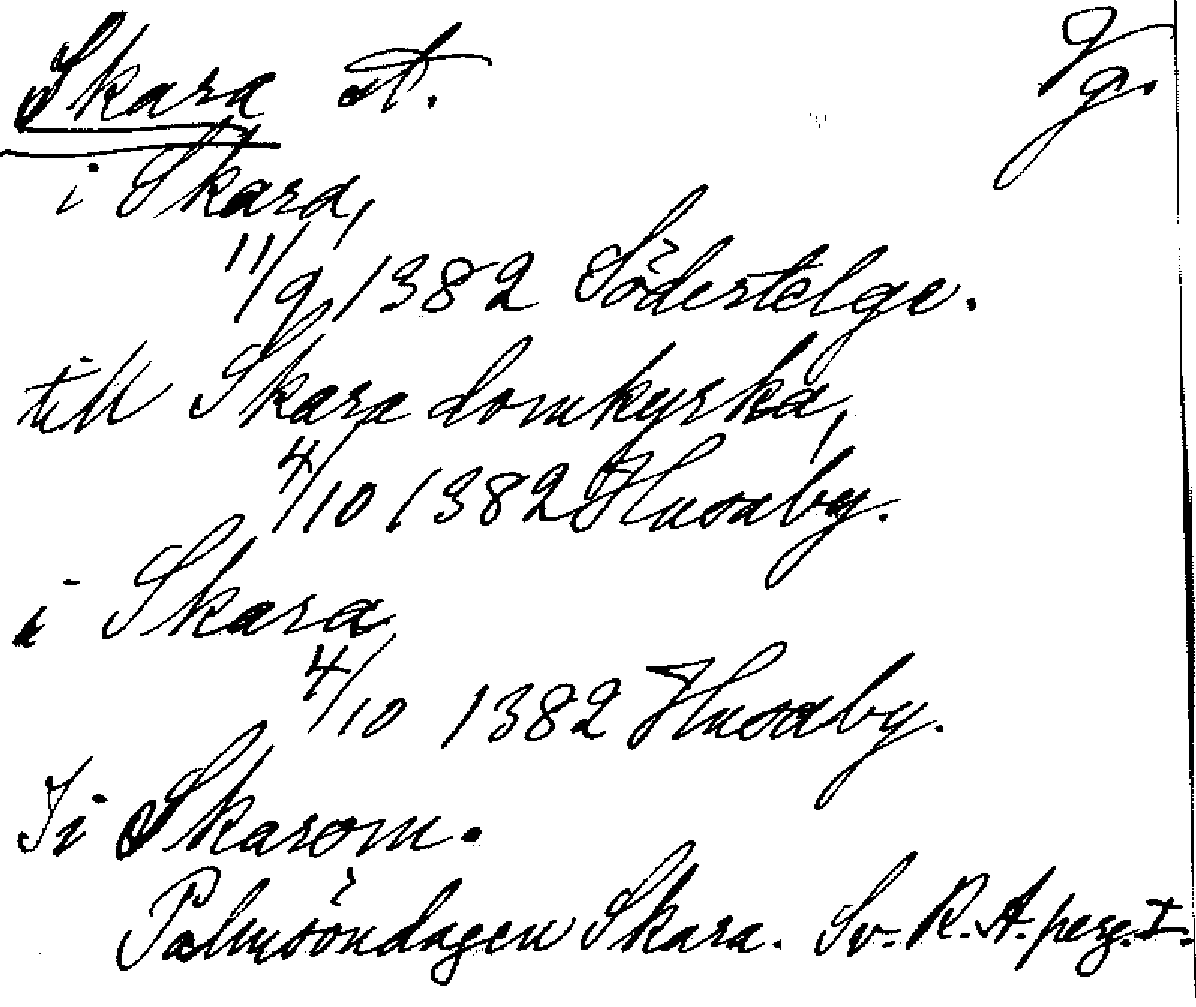 Skara st. Vg.
i Skara,
11/9 1382 Södertelge.
till Skara domkyrka,
4/10 1382 Husaby.
i Skara
4/10 1382 Husaby.
J i Skarom.
Palmsöndagen Skara. Sv. R. A. perg. I.